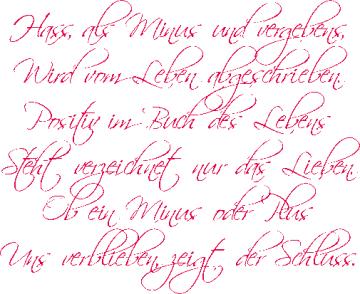 Hass, als Minus und vergebens,
Wird vom Leben abgeschrieben.
Positiv im Buch des Lebens
Steht verzeichnet nur das Lieben.
Ob ein Minus oder Plus
Uns verblieben, zeigt der Schluss.